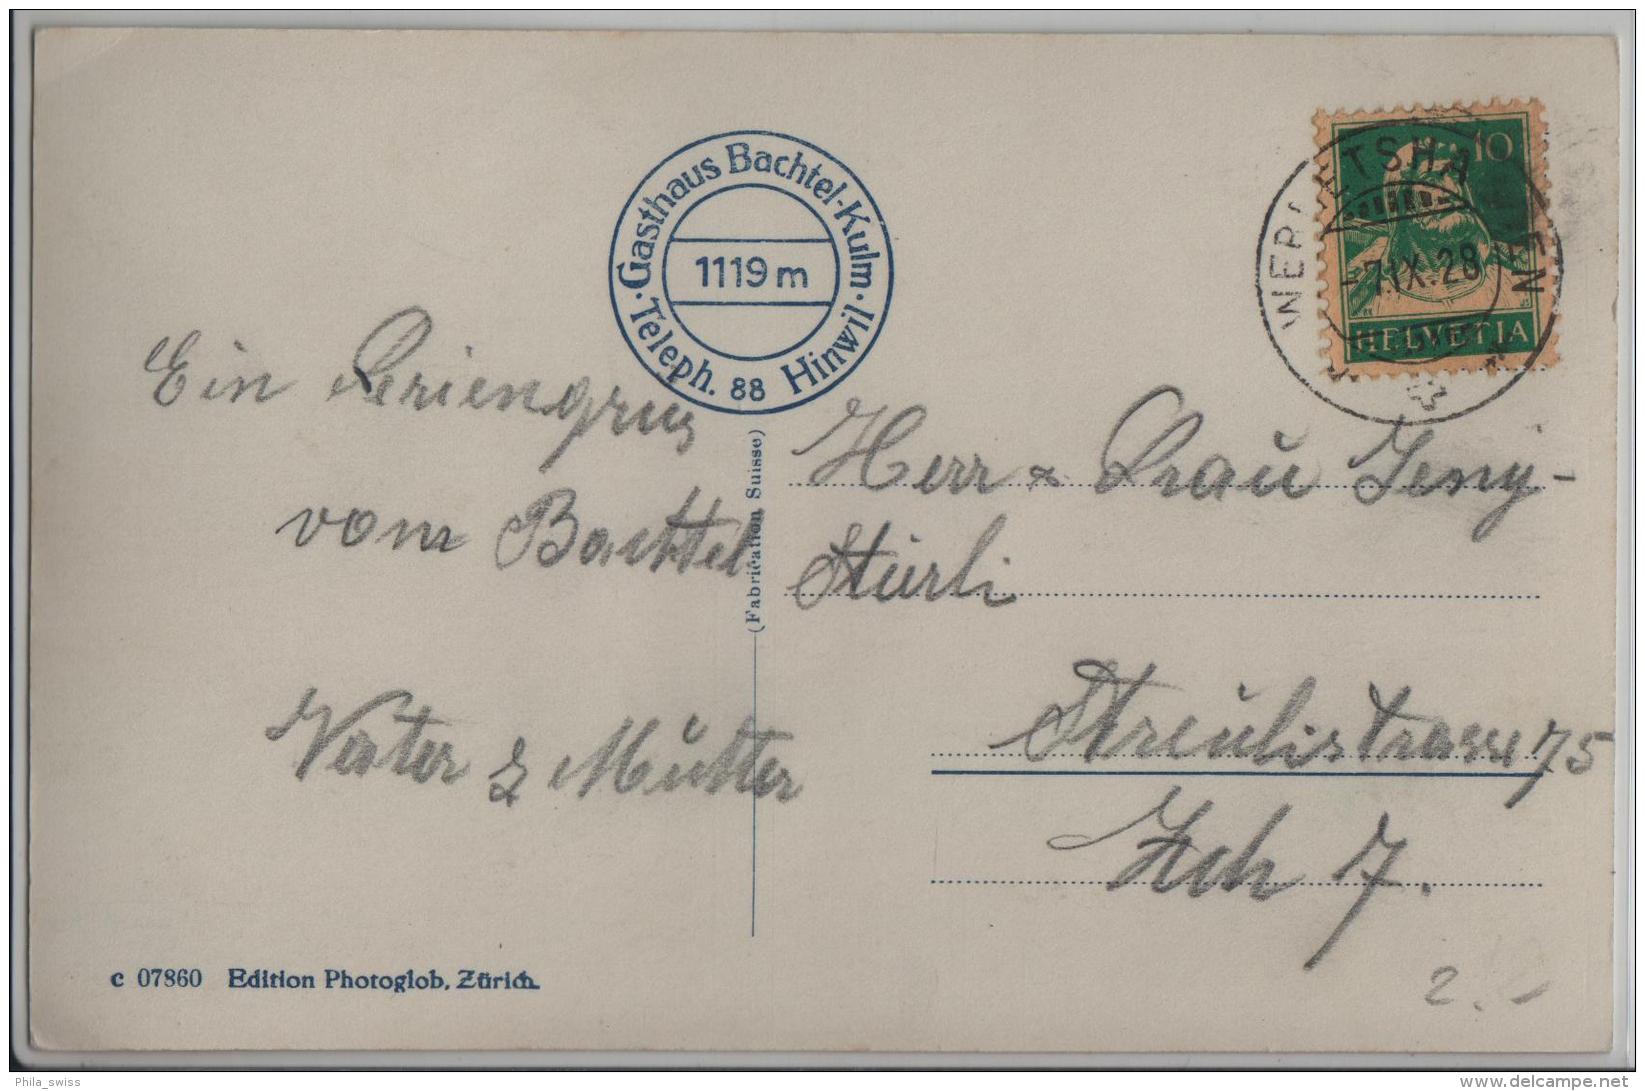 Gasthaus Bachtel-Kulm
1119 m
Teleph. 88 Hinwil
10
WERNETSHAUSEN
-7.IX.28
HELVETIA
Ein Feriengruss
vom Bachtel
Vater & Mutter
(Fabrication Suisse)
Herr & Frau Jeny-
Stürli
Streulistrasse 75
Zch 7.
c 07860 Edition Photoglob, Zürich.
2.-
Phila_swiss
delcampe.net